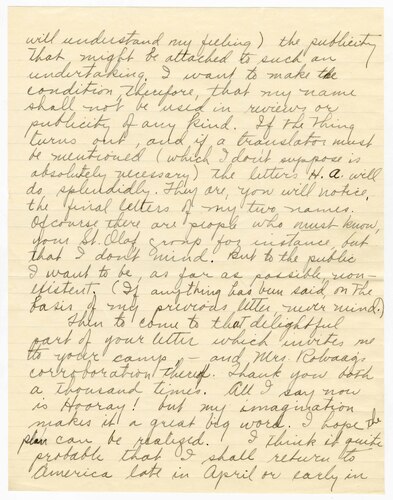 will understand my feeling) the publicity
that might be attached to such an
undertaking. I want to make the
condition therefore, that my name
shall not be used in reviews or
publicity of any kind. If the thing
turns out, and if a translator must
be mentioned (which I don't suppose is
absolutely necessary) the letters H. A. will
do splendidly. They are, you will notice,
the final letters of my two names.
Of course there are people who must know,
your St. Olaf group for instance, but
that I don't mind. But to the public
I want to be, as far as possible, non-
existent. (If anything has been said, on the
basis of my previous letter, never mind.)
Then to come to that delightful
part of your letter which invites me
to your camp, - and Mrs. Rolvaag's
corroboration thereof. Thank you both
a thousand times. All I say now
is Hooray! but my imagination
makes it a great big word. I hope the
plan can be realized. I think it quite
probable that I shall return to
America late in April or early in